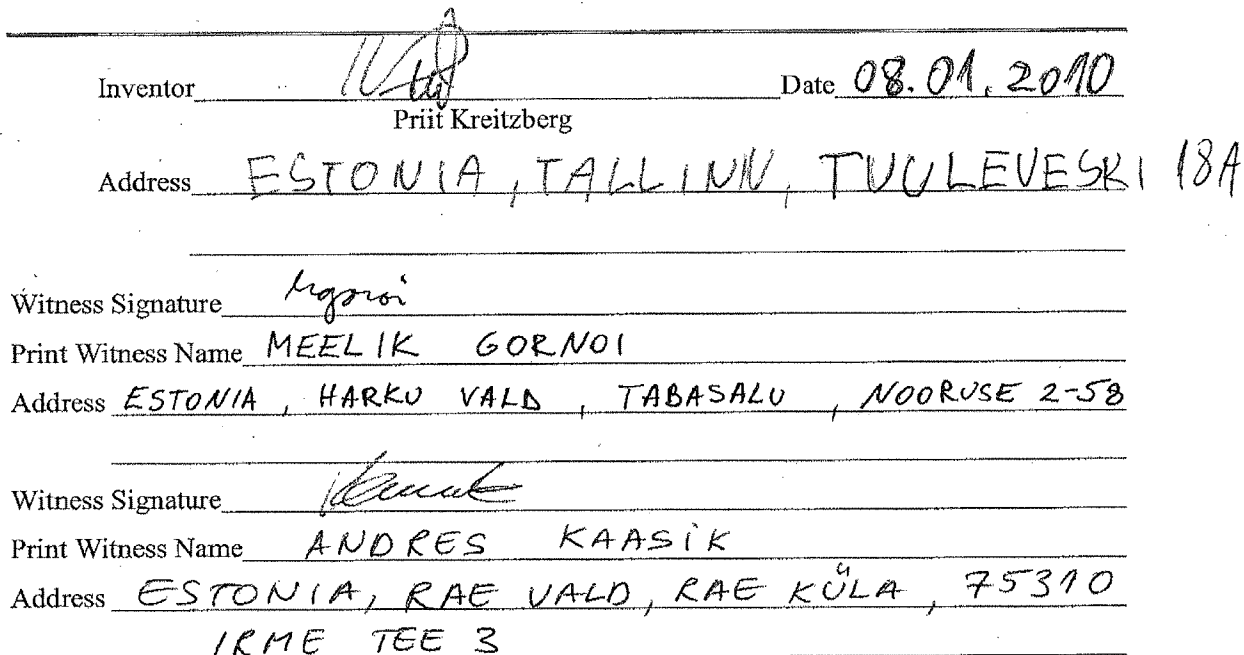 Inventor Date 08.01.2010
Priit Kreitzberg
Address ESTONIA, TALLINN, TUULEVESKI 18A
Witness Signature
Print Witness Name MEELIK GORNOI
Address ESTONIA, HARKU VALD, TABASALU, NOORUSE 2-58
Witness Signature
Print Witness Name ANDRES KAASIK
Address ESTONIA, RAE VALD, RAE KÜLA, 75310
IRME TEE 3